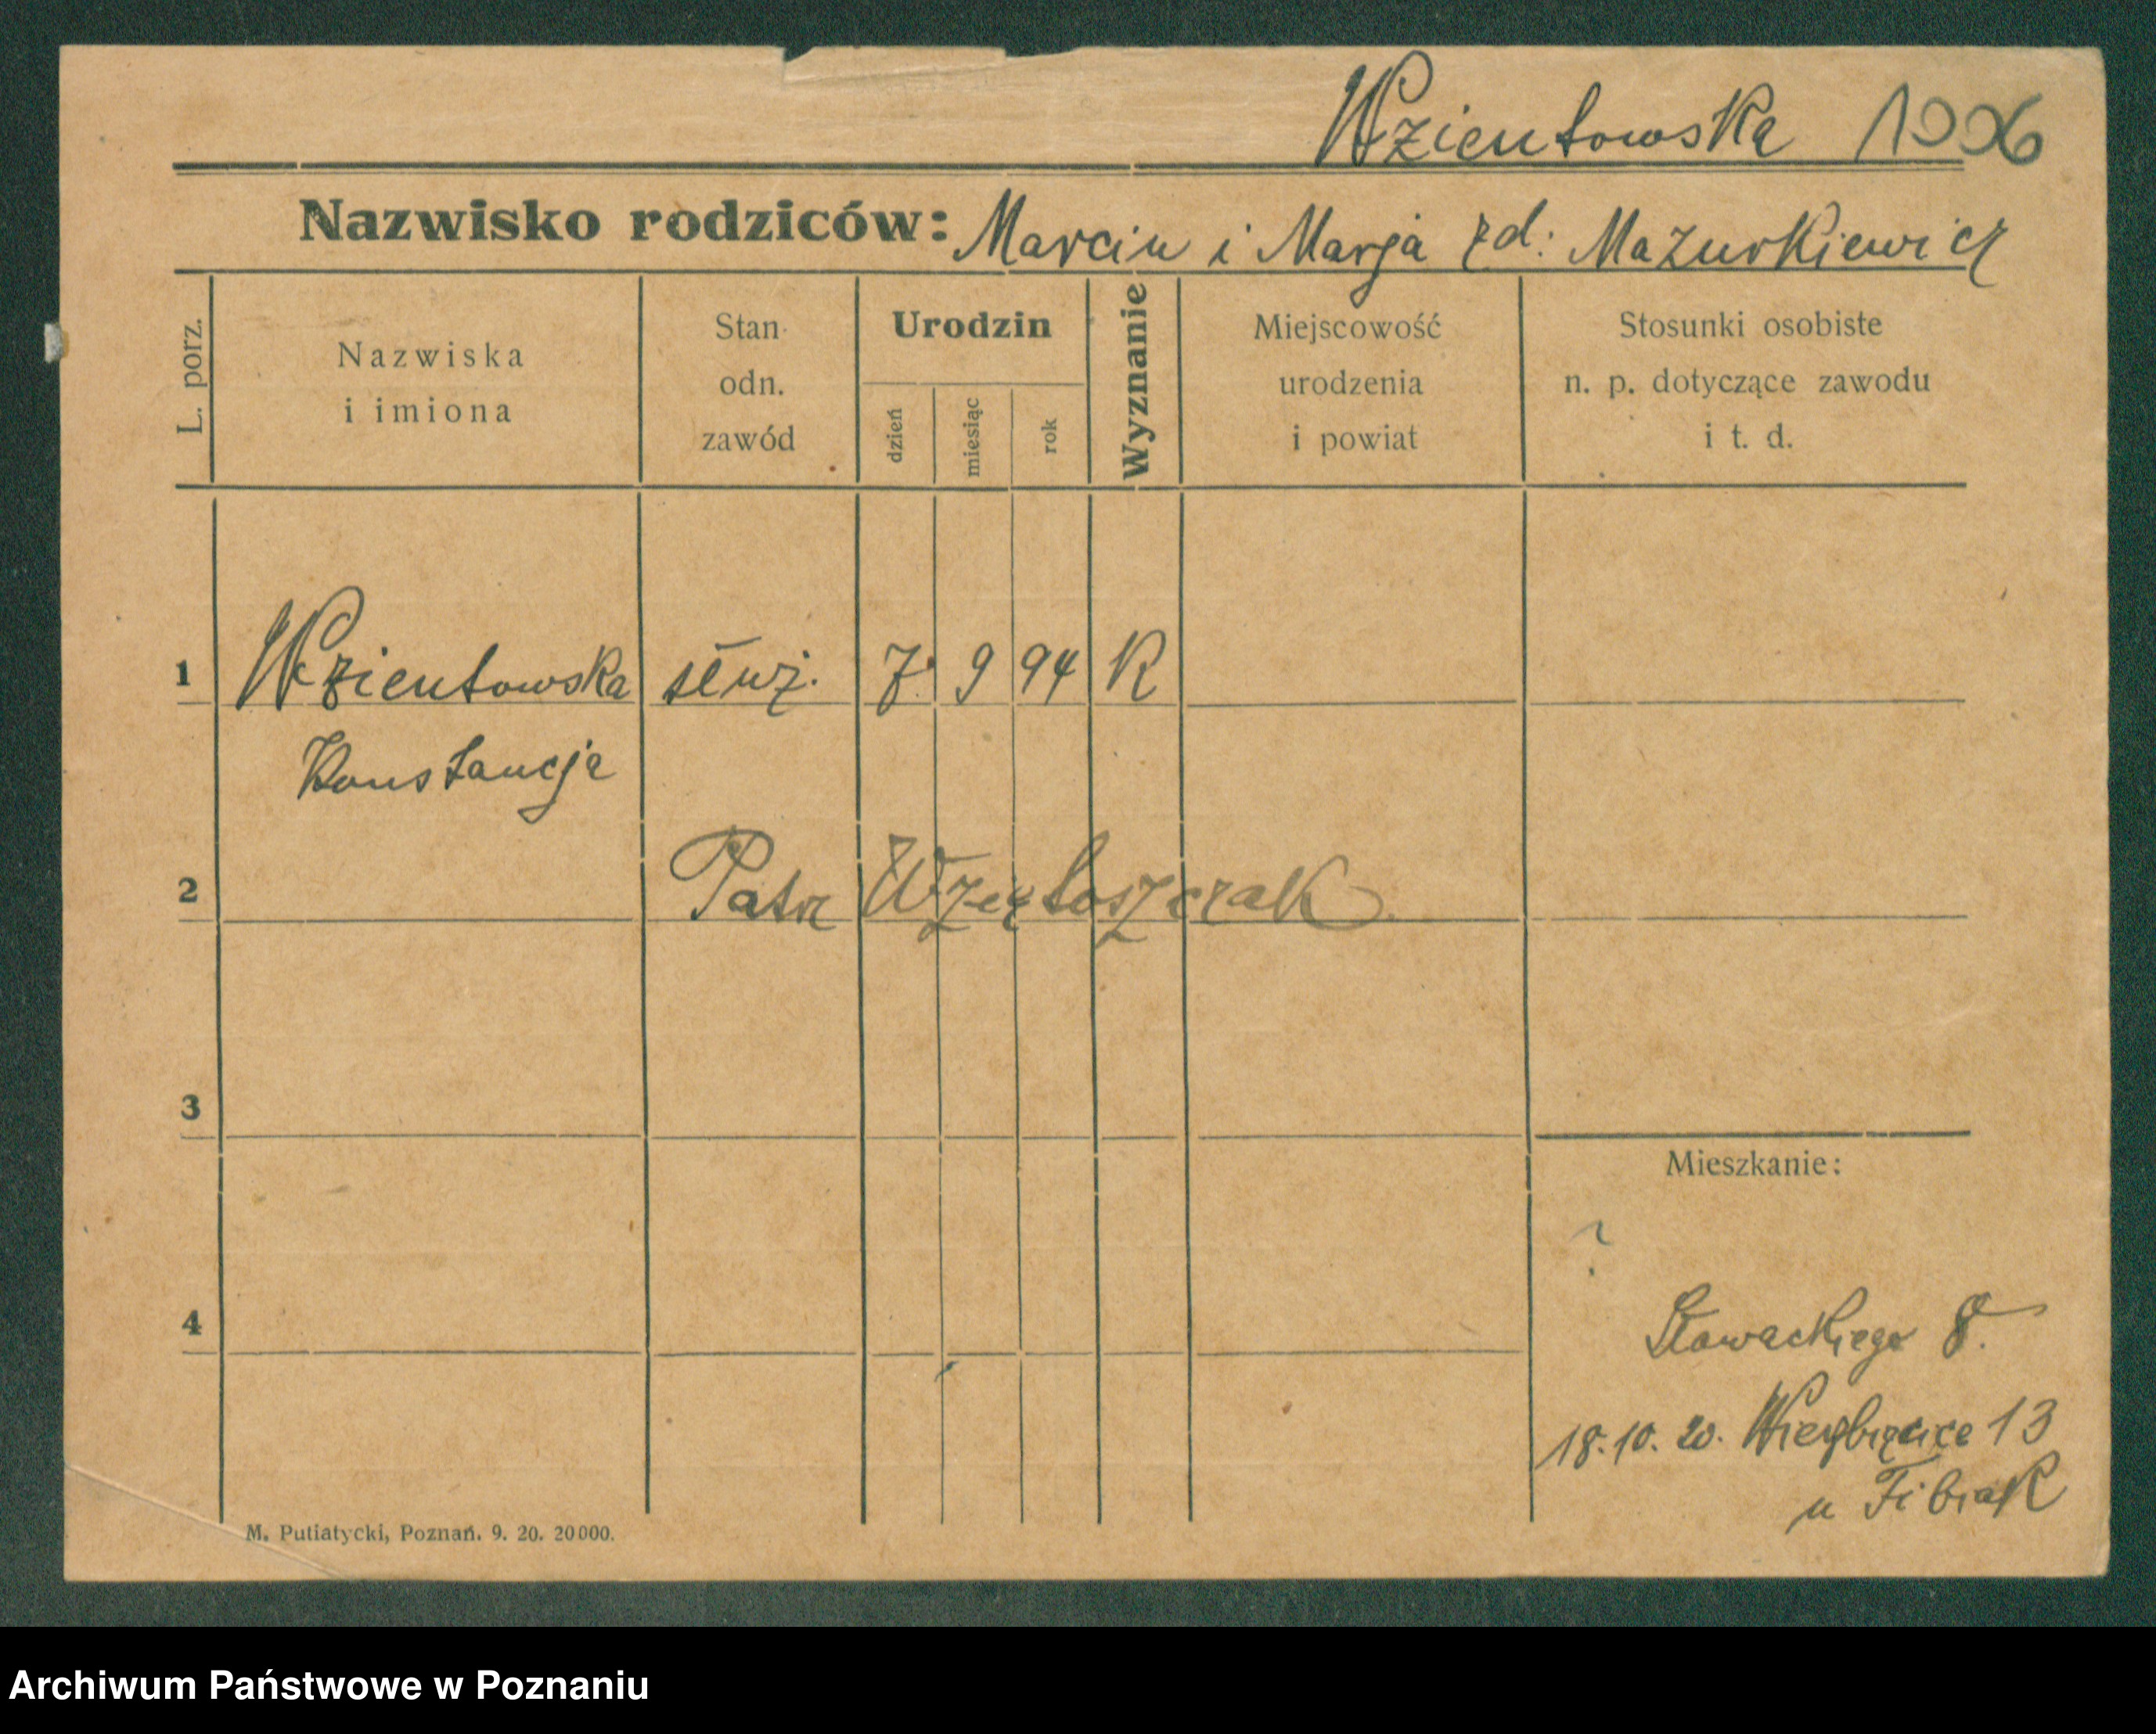 Wzientowska
Nazwisko rodziców: Marcin i Marja zd: Mazurkiewicz
L. porz.
Nazwiska
i imiona
Stan
odn.
zawód
Urodzin
dzień
miesiąc
rok
Wyznanie
Miejscowość
urodzenia
i powiat
Stosunki osobiste
n. p. dotyczące zawodu
i t. d.
1 Wzientowska 7. 9 94 K
Konstancja
2 Patrz Wziętoszczak
3
Mieszkanie:
?
4 Słowackiego 8.
18.10.20. Wierzbięcice 13
u Fibiak
M. Putiatycki, Poznań. 9. 20. 20000.
Archiwum Państwowe w Poznaniu